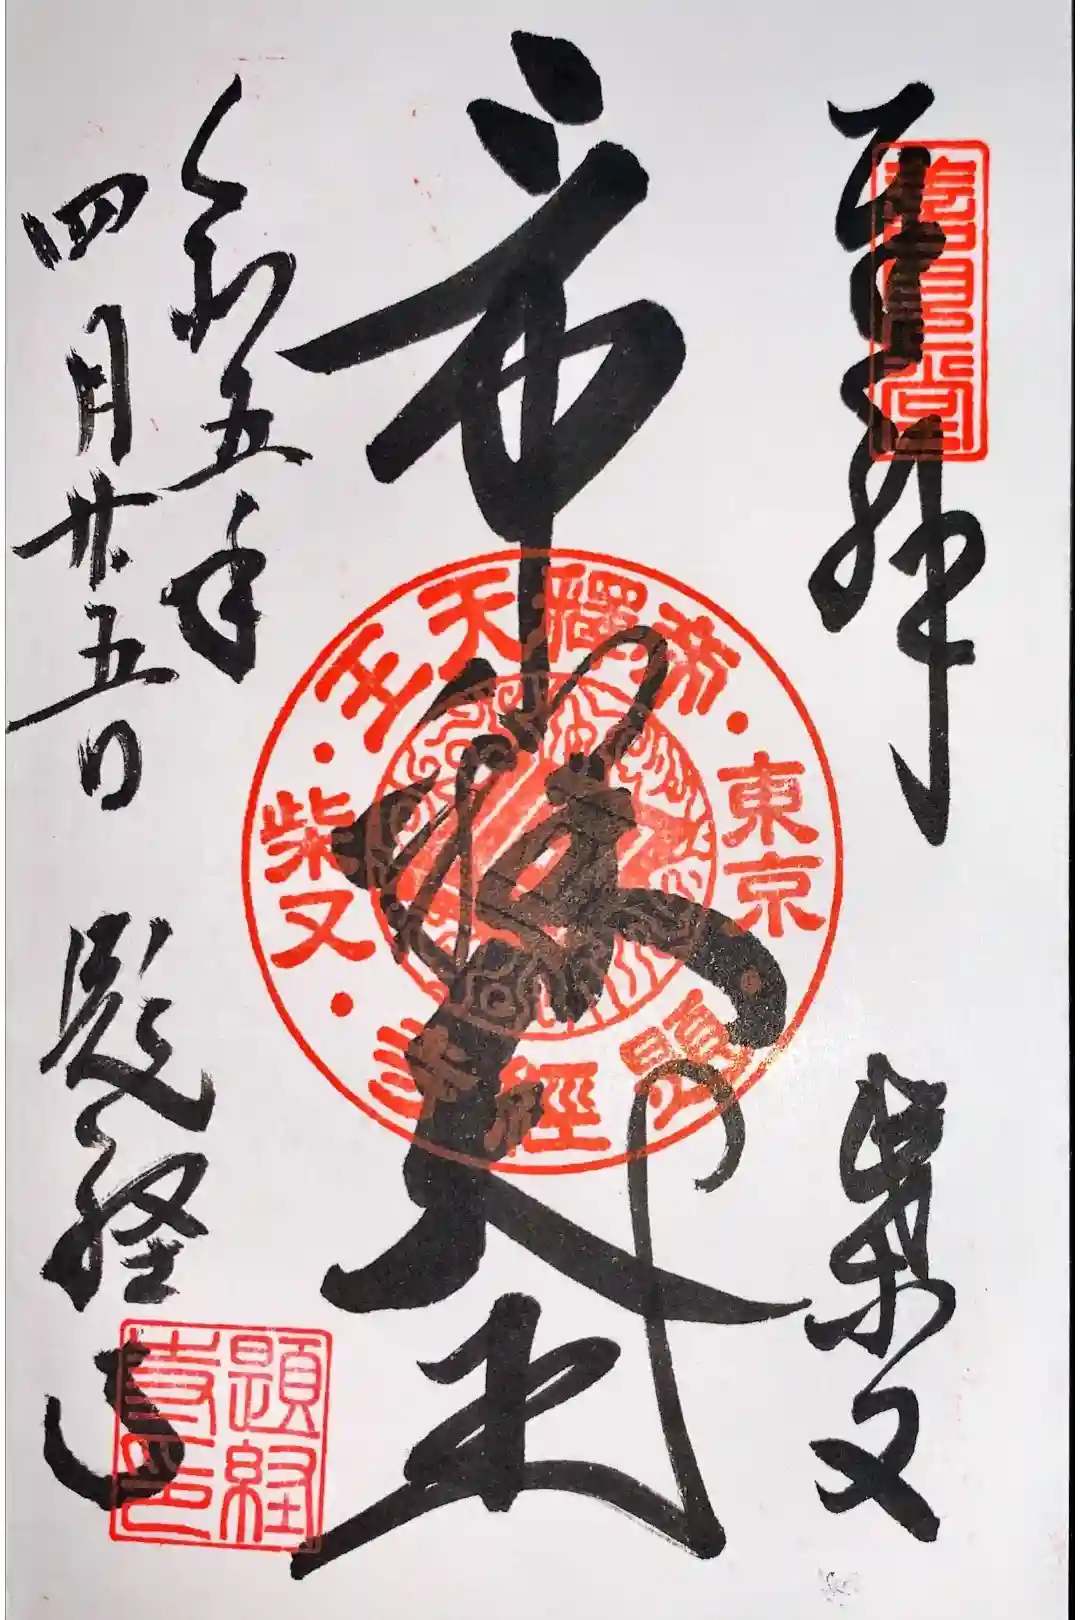 奉拝
柴又
帝釈天王
令和五年
四月廿五日 題経寺
喜見堂
東京
帝釋天王
柴又
題經寺
題経
寺印